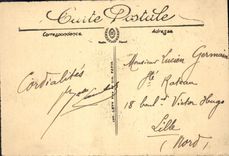 Carte Postale
Correspondance
Adresse
Cordialités
Monsieur Lucien Germain
18 boul^t Victor Hugo
Lille
(Nord)